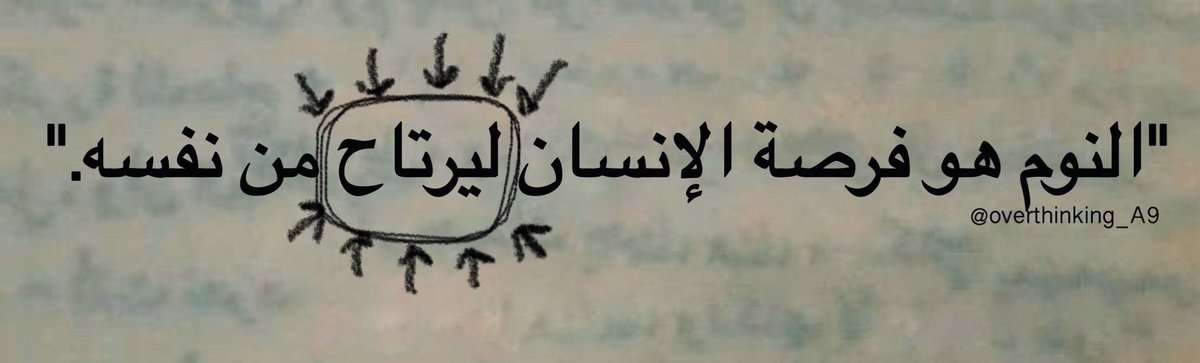 "النوم هو فرصة الإنسان ليرتاح من نفسه."
@overthinking_A9